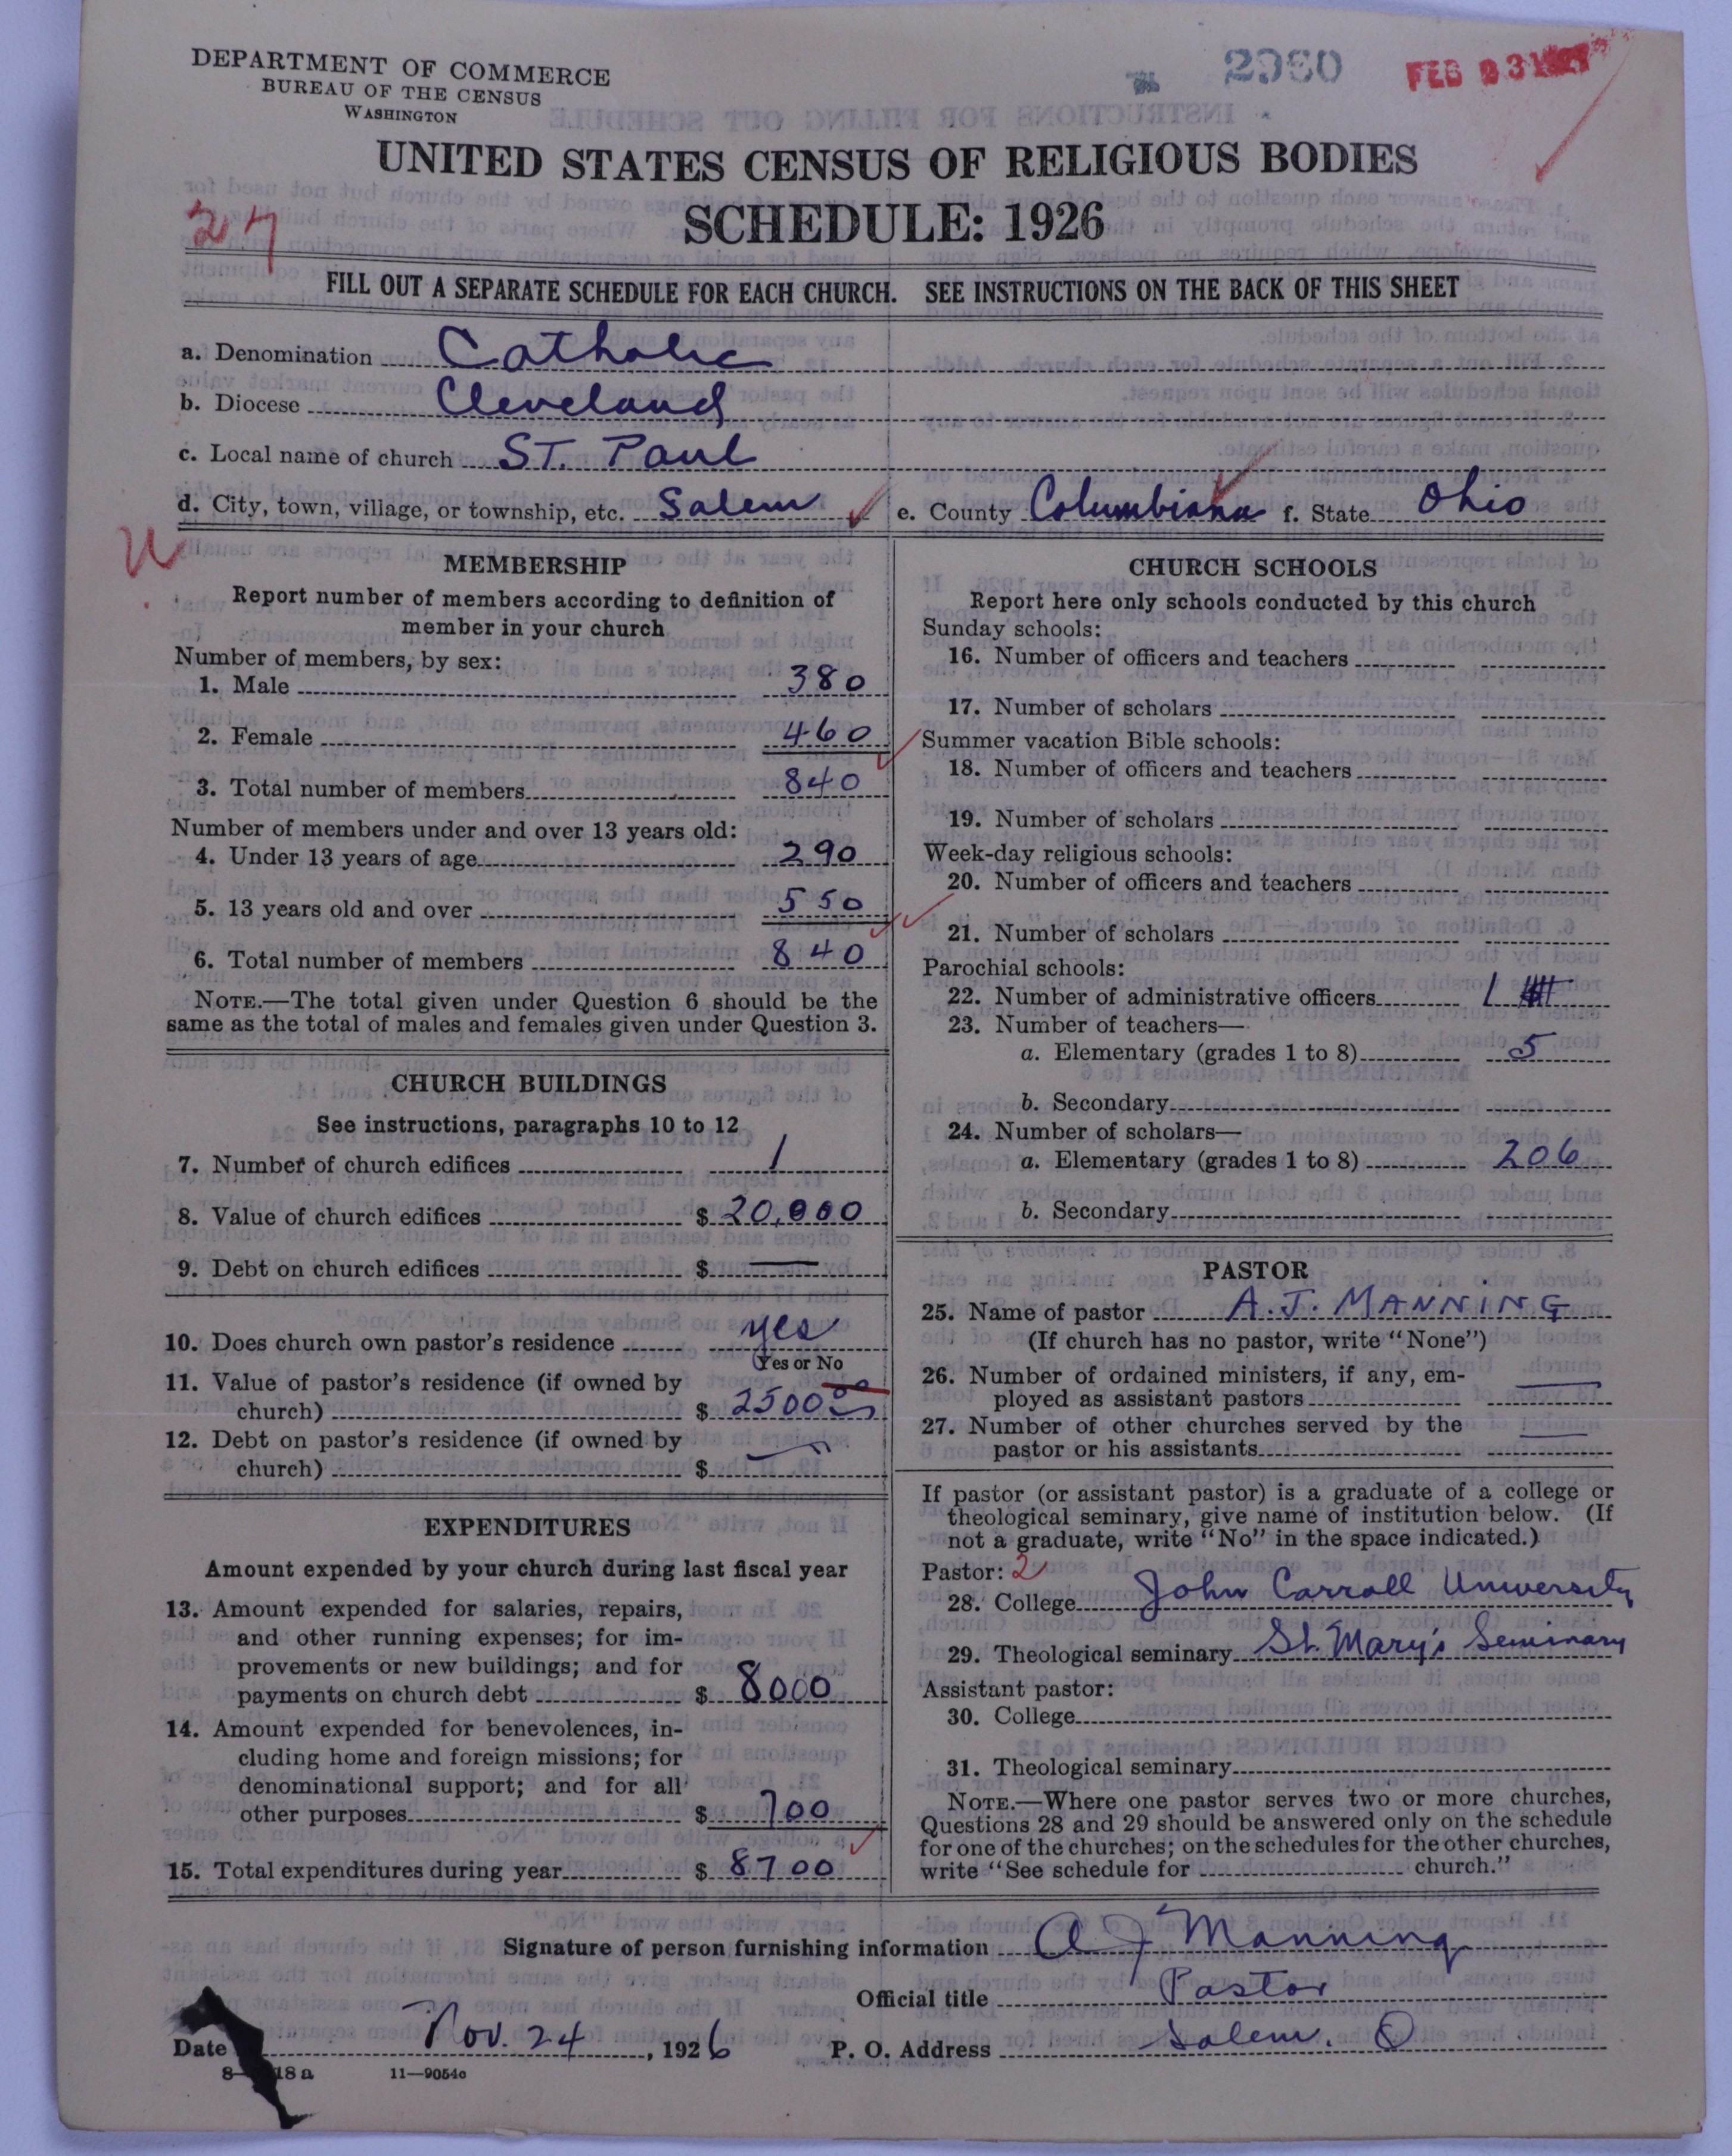 DEPARTMENT OF COMMERCE
BUREAU OF THE CENSUS
WASHINGTON
2980
FEB 23 1927
UNITED STATES CENSUS OF RELIGIOUS BODIES
SCHEDULE: 1926
27
FILL OUT A SEPARATE SCHEDULE FOR EACH CHURCH. SEE INSTRUCTIONS ON THE BACK OF THIS SHEET
a. Denomination Catholic
b. Diocese Cleveland
c. Local name of church ST. Paul
d. City, town, village, or township, etc. Salem e. County Columbiana f. State Ohio
U
MEMBERSHIP
Report number of members according to definition of
member in your church
Number of members, by sex:
1. Male 380
2. Female 460
3. Total number of members 840
Number of members under and over 13 years old:
4. Under 13 years of age 290
5. 13 years old and over 550
6. Total number of members 840
NOTE.—The total given under Question 6 should be the
same as the total of males and females given under Question 3.
CHURCH BUILDINGS
See instructions, paragraphs 10 to 12
7. Number of church edifices 1
8. Value of church edifices $ 20,000
9. Debt on church edifices $ —
10. Does church own pastor's residence yes
Yes or No
11. Value of pastor's residence (if owned by
church) $ 2500 00
12. Debt on pastor's residence (if owned by
church) $ —
EXPENDITURES
Amount expended by your church during last fiscal year
13. Amount expended for salaries, repairs,
and other running expenses; for im-
provements or new buildings; and for
payments on church debt $ 8000
14. Amount expended for benevolences, in-
cluding home and foreign missions; for
denominational support; and for all
other purposes $ 700
15. Total expenditures during year $ 8700
CHURCH SCHOOLS
Report here only schools conducted by this church
Sunday schools:
16. Number of officers and teachers
17. Number of scholars
Summer vacation Bible schools:
18. Number of officers and teachers
19. Number of scholars
Week-day religious schools:
20. Number of officers and teachers
21. Number of scholars
Parochial schools:
22. Number of administrative officers 1
23. Number of teachers—
a. Elementary (grades 1 to 8) 5
b. Secondary
24. Number of scholars—
a. Elementary (grades 1 to 8) 206
b. Secondary
PASTOR
25. Name of pastor A. J. MANNING
(If church has no pastor, write "None")
26. Number of ordained ministers, if any, em-
ployed as assistant pastors —
27. Number of other churches served by the
pastor or his assistants —
If pastor (or assistant pastor) is a graduate of a college or
theological seminary, give name of institution below. (If
not a graduate, write "No" in the space indicated.)
Pastor: 2
28. College John Carroll University
29. Theological seminary St. Mary's Seminary
Assistant pastor:
30. College
31. Theological seminary
NOTE.—Where one pastor serves two or more churches,
Questions 28 and 29 should be answered only on the schedule
for one of the churches; on the schedules for the other churches,
write "See schedule for church."
Signature of person furnishing information A J Manning
Official title Pastor
Date Nov. 24, 1926 P. O. Address Salem. O
8— 18a 11—9054c